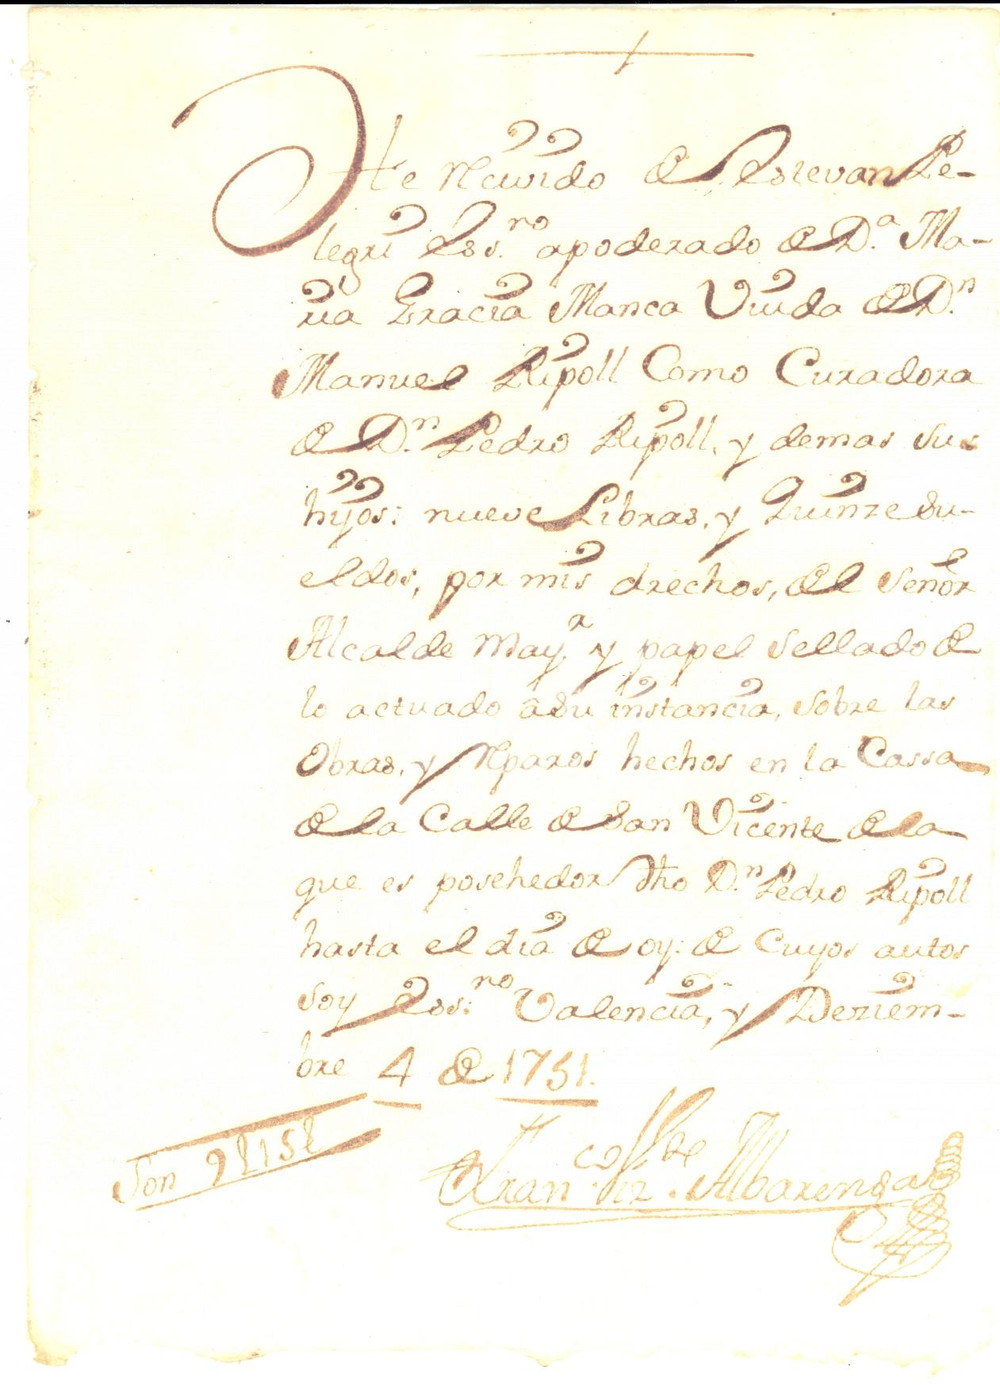 He Rcivido de Estevan Pe-
legri Ess.no apoderado de D.a Ma-
ria Gracia Manca Viuda de D.n
Manuel Ripoll Como Curadora
de D.n Pedro Ripoll, y demas sus
hijos: nueve Libras, y Quinze Su-
eldos, por mis drechos, del Señor
Alcalde May.r y papel sellado de
lo actuado a su instancia, sobre las
Obras, y Rparos hechos en la Cassa
de la Calle de San Vicente de la
que es posehedor dho D.n Pedro Ripoll
hasta el dia de oy: de cuyos autos
soy Ess.no Valencia, y Deziem-
bre 4 de 1751.
Son 9 L 15 S
Fran.co Albarenga